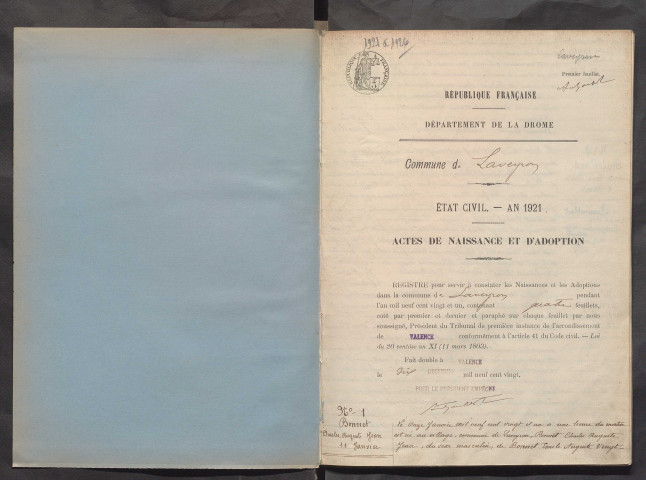 1921 à 1924
Laveyron
Premier feuillet.
RÉPUBLIQUE FRANÇAISE
DÉPARTEMENT DE LA DROME
Commune de Laveyron
ÉTAT CIVIL. — AN 1921.
ACTES DE NAISSANCE ET D'ADOPTION
REGISTRE pour servir à constater les Naissances et les Adoptions
dans la commune de Laveyron pendant
l'an mil neuf cent vingt et un, contenant quatre feuillets,
coté par premier et dernier et paraphé sur chaque feuillet par nous
soussigné, Président du Tribunal de première instance de l'arrondissement
de VALENCE conformément à l'article 41 du Code civil. — Loi
du 20 ventôse an XI (11 mars 1803).
Fait double à VALENCE
le dix mil neuf cent vingt.
POUR LE PRÉSIDENT EMPÊCHÉ
No 1
Bonnet
Charles Auguste Jean
11 Janvier
Le onze Janvier mil neuf cent vingt et un à une heure du matin
est né au village, commune de Laveyron Bonnet Charles Auguste
Jean, du sexe masculin, de Bonnet Auguste Vingt-